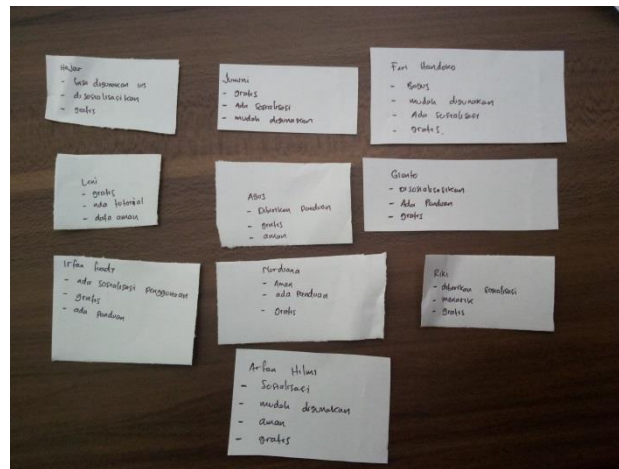 Hajar
- bisa digunakan
- disosialisasikan
- gratis
Jumni
- gratis
- Ada Sosialisasi
- mudah digunakan
Feri Handoko
- Bagus
- mudah digunakan
- Ada Sosialisasi
- gratis.
Leni
- gratis
- ada tutorial
- data aman
Agus
- Diberikan Panduan
- gratis
- aman
Gianto
- Disosialisasikan
- Ada Panduan
- gratis
Irfan
- ada sosialisasi penggunaan
- gratis
- ada panduan
Nordiana
- Aman
- ada Panduan
- gratis
Riki
- diberikan sosialisasi
- menarik
- gratis
Arfan Hilmi
- Sosialisasi
- mudah digunakan
- aman
- gratis